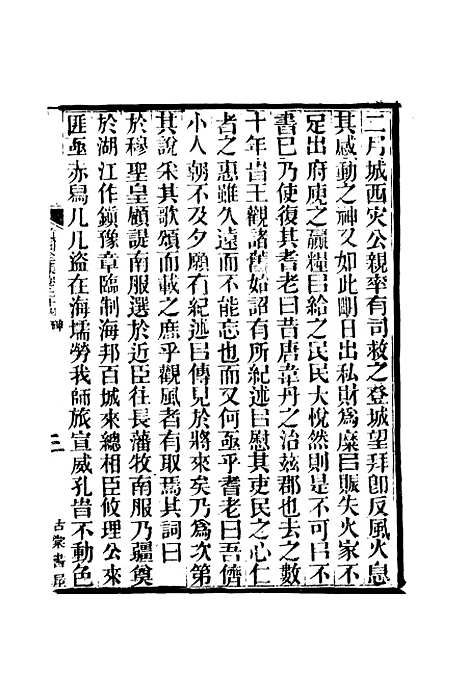 二月城西灾公親率有司救之登城望拜卽反風火息
其感動之神又如此朙日出私財為糜㠯賑失火家不
足出府庾之贏糧㠯給之民民大悅然則是不可㠯不
書巳乃使復其耆老曰昔唐韋丹之治茲郡也去之數
十年旹王觀諸舊始詔有所紀述㠯慰其吏民之心仁
者之惠雖久遠而不能忘也而又何亟乎耆老曰吾儕
小人朝不及夕願有紀述㠯傳見於將來矣乃為次第
其說采其歌頌而載之庶乎觀風者有取焉其詞曰
於穆聖皇顧諟南服選於近臣往長藩牧南服乃疆奠
於湖江作鎭豫章臨制海邦百城來總相臣攸理公來
匪亟赤舄几几盜在海壖勞我師旅宣威孔旹不動色
古棠書屋